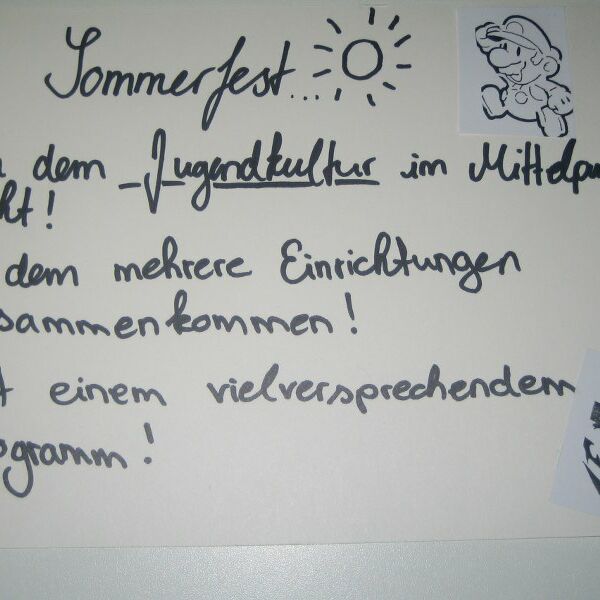 Sommerfest...
dem Jugendkultur im Mittelpu
ht!
dem mehrere Einrichtungen
sammenkommen!
t einem vielversprechendem
ogramm!